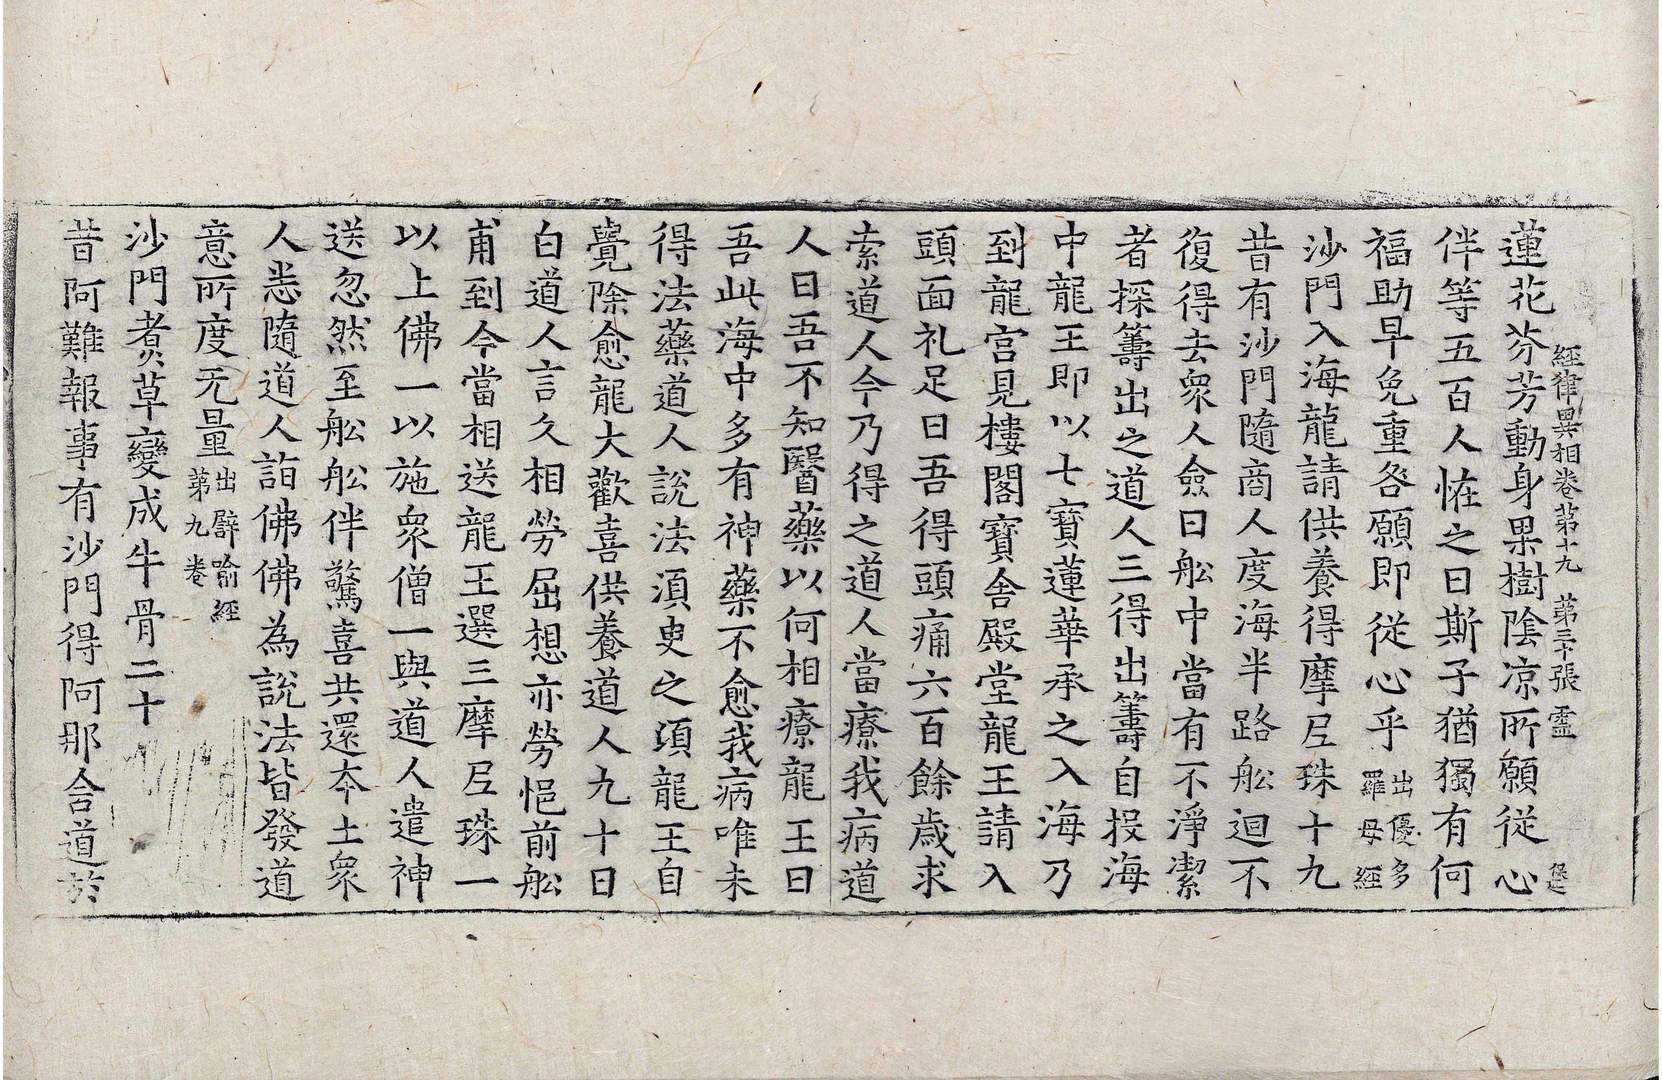 經律異相卷第十九　第三十張　靈
蓮花芬芳動身果樹陰凉所願從心
伴等五百人恠之曰斯子猶獨有何
福助早免重咎願即從心乎出優多羅母經
沙門入海龍請供養得摩尼珠十九
昔有沙門隨商人度海半路舩迴不
復得去衆人僉曰舩中當有不淨潔
者探籌出之道人三得出籌自投海
中龍王即以七寶蓮華承之入海乃
到龍宫見樓閣寶舍殿堂龍王請入
頭面礼足曰吾得頭痛六百餘歲求
索道人今乃得之道人當療我病道
人曰吾不知醫藥以何相療龍王曰
吾此海中多有神藥不愈我病唯未
得法藥道人說法須臾之頃龍王自
覺除愈龍大歡喜供養道人九十日
白道人言久相勞屈想亦勞悒前舩
甫到今當相送龍王選三摩尼珠一
以上佛一以施衆僧一與道人遣神
送忽然至舩舩伴驚喜共還本土衆
人悉隨道人詣佛佛為說法皆發道
意所度无量出譬喻經第九卷
沙門煮草變成牛骨二十
昔阿難報事有沙門得阿那含道於